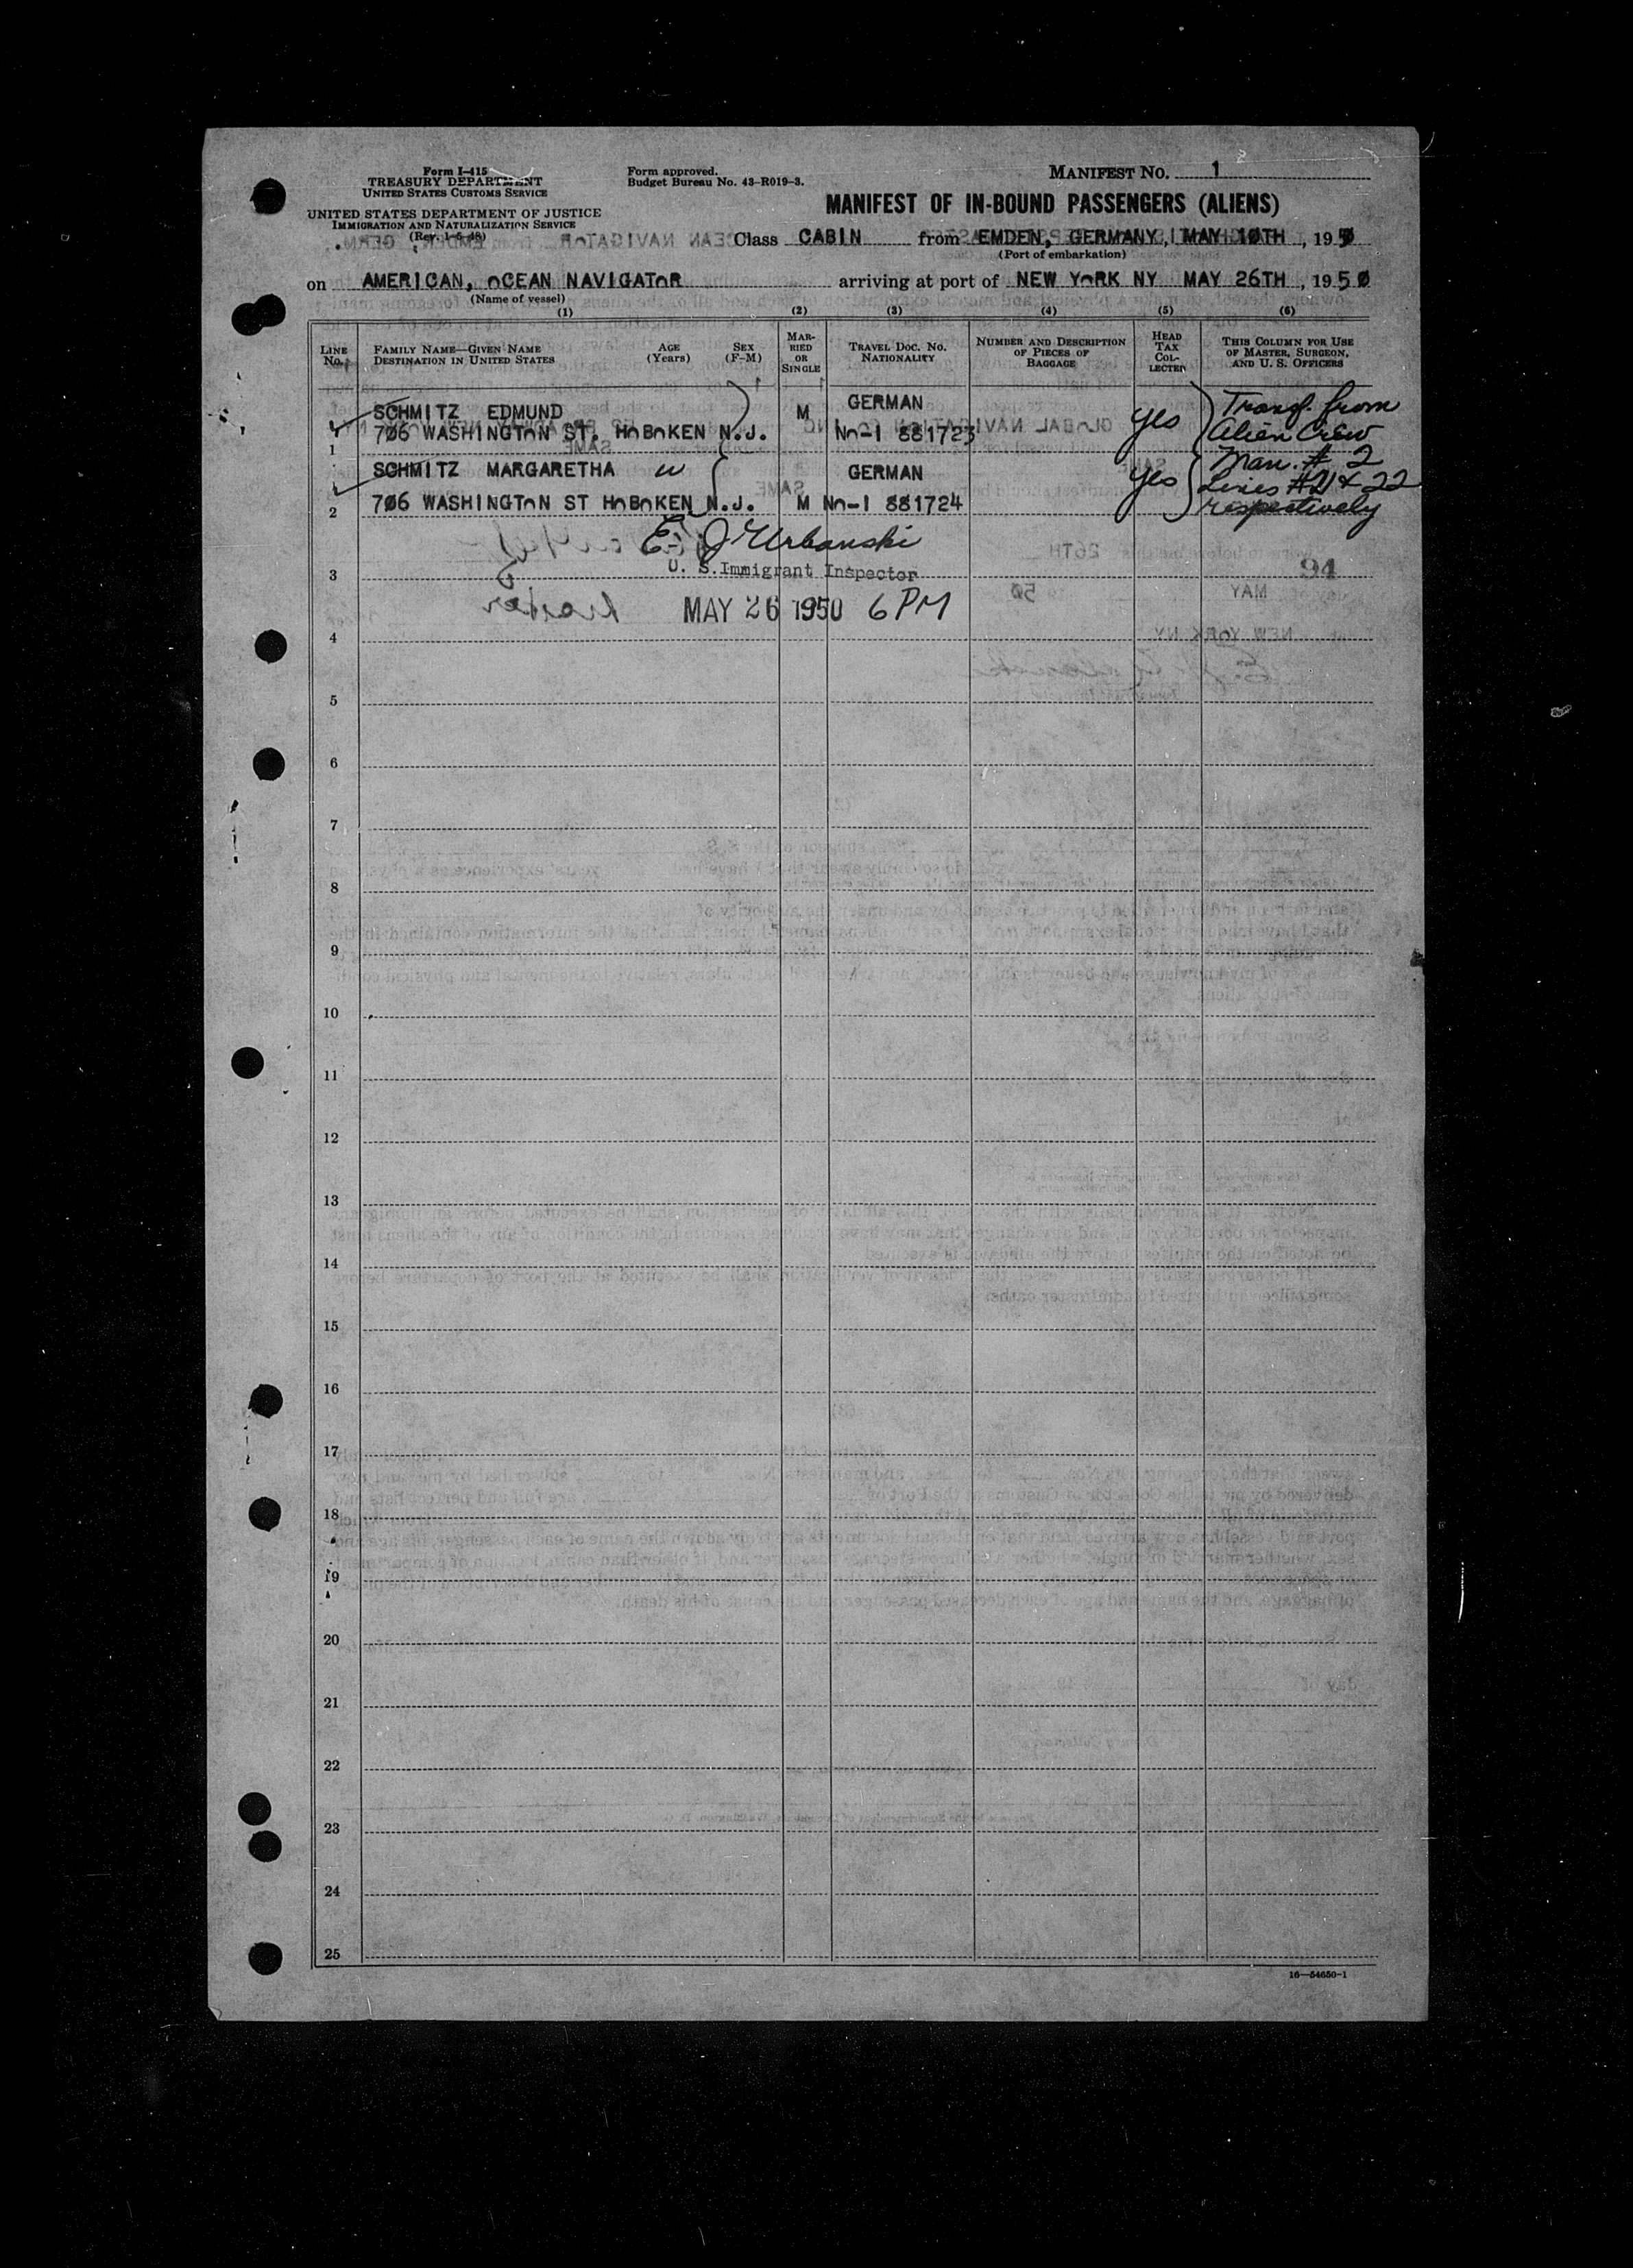 Form I-415
TREASURY DEPARTMENT
UNITED STATES CUSTOMS SERVICE
UNITED STATES DEPARTMENT OF JUSTICE
IMMIGRATION AND NATURALIZATION SERVICE
(Rev. 1-5-48)
Form approved.
Budget Bureau No. 43-R019-3.
MANIFEST NO. 1
MANIFEST OF IN-BOUND PASSENGERS (ALIENS)
Class CABIN from EMDEN, GERMANY, MAY 10TH, 1950
(Port of embarkation)
on AMERICAN, OCEAN NAVIGATOR arriving at port of NEW YORK NY MAY 26TH, 1950
(Name of vessel)
(1) (2) (3) (4) (5) (6)
LINE NO.
FAMILY NAME—GIVEN NAME
DESTINATION IN UNITED STATES
AGE (Years)
SEX (F-M)
MARRIED OR SINGLE
TRAVEL DOC. NO. NATIONALITY
NUMBER AND DESCRIPTION OF PIECES OF BAGGAGE
HEAD TAX COLLECTED
THIS COLUMN FOR USE OF MASTER, SURGEON, AND U. S. OFFICERS
SCHMITZ EDMUND M GERMAN
1 706 WASHINGTON ST. HOBOKEN N.J. No-I 881723 Yes
Transf. from
Alien Crew
Man. # 2
Lines #21 & 22
respectively
SCHMITZ MARGARETHA W GERMAN
2 706 WASHINGTON ST HOBOKEN N.J. M No-I 881724 Yes
E. J. Urbanski
3 U. S. Immigrant Inspector 94
MAY 26 1950 6 PM
4
5
6
7
8
9
10
11
12
13
14
15
16
17
18
19
20
21
22
23
24
25
16—54650-1